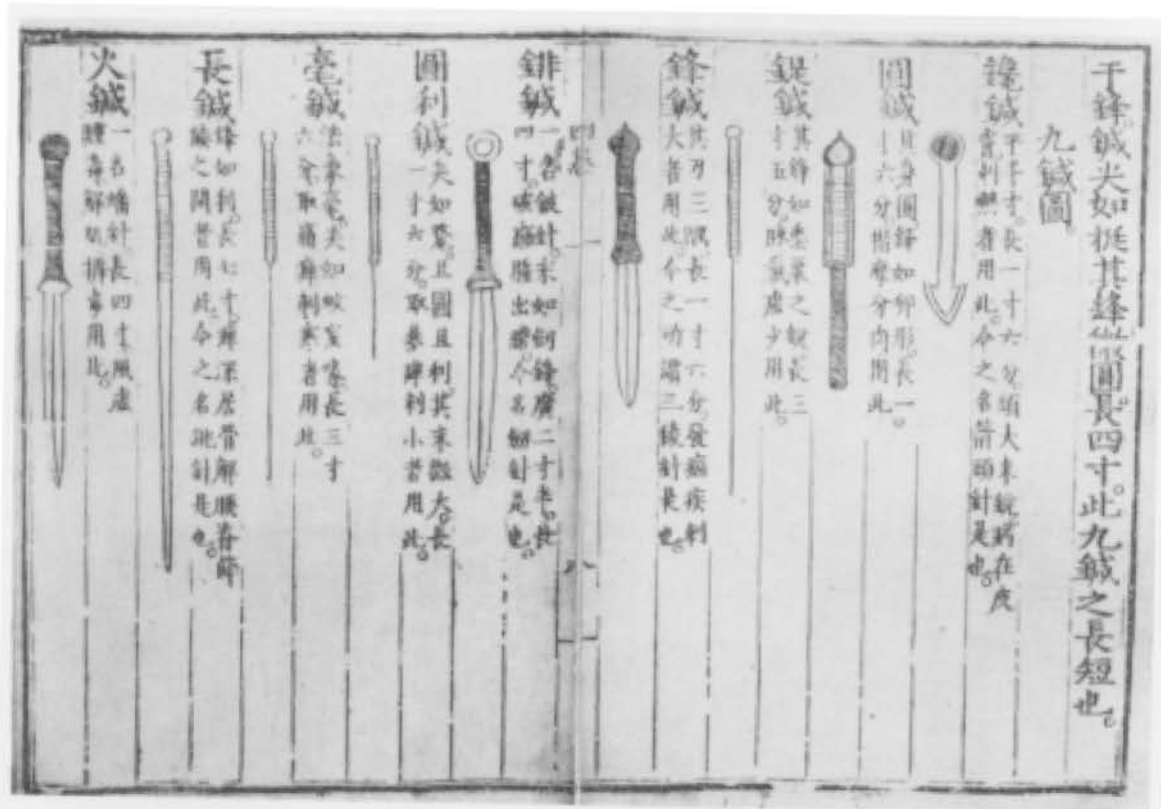 于鋒鍼尖如挺其鋒微圓長。四寸。此九鍼之長短也。
九鍼圖。
鑱鍼
平半寸。長一寸六分。頭大末銳。病在皮
膚。刺熱者用此。今之名箭頭針是也。
圓鍼
其身圓。鋒如卵形。長一
寸六分。揩摩分肉用此。
鍉鍼
其鋒如黍粟之銳。長三
寸五分。脉氣虛少用此。
鋒鍼
其刃三隅。長一寸六分。發痼疾刺
大者用此。今之所謂三稜針是也。
四卷
八
錍鍼
一名鈹針。末如劍鋒。廣二寸半。長
四寸。破癰腫出膿。今名劍針是也。
圓利鍼
尖如氂。且圓且利。其末微大。長
一寸六分。取暴痺刺小者用此。
毫鍼
法象毫。尖如蚊虻喙。長三寸
六分。取痛痺刺寒者用此。
長鍼
鋒如利。長七寸。痺深居骨解腰脊節
腠之間者用此。今之名跳針是也。
火鍼
一名燔針。長四寸。風虛
腫毒。解肌排毒用此。